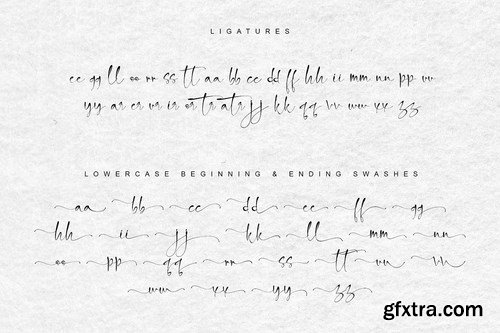 LIGATURES
ee gg ll oo rr ss tt aa bb cc dd ff hh ii mm nn pp uu
yy ar er ur ir or tr atr jj kk qq vv ww xx zz
LOWERCASE BEGINNING & ENDING SWASHES
aa bb cc dd ee ff gg
hh ii jj kk ll mm nn
oo pp qq rr ss tt uu vv
ww xx yy zz
gfxtra.com